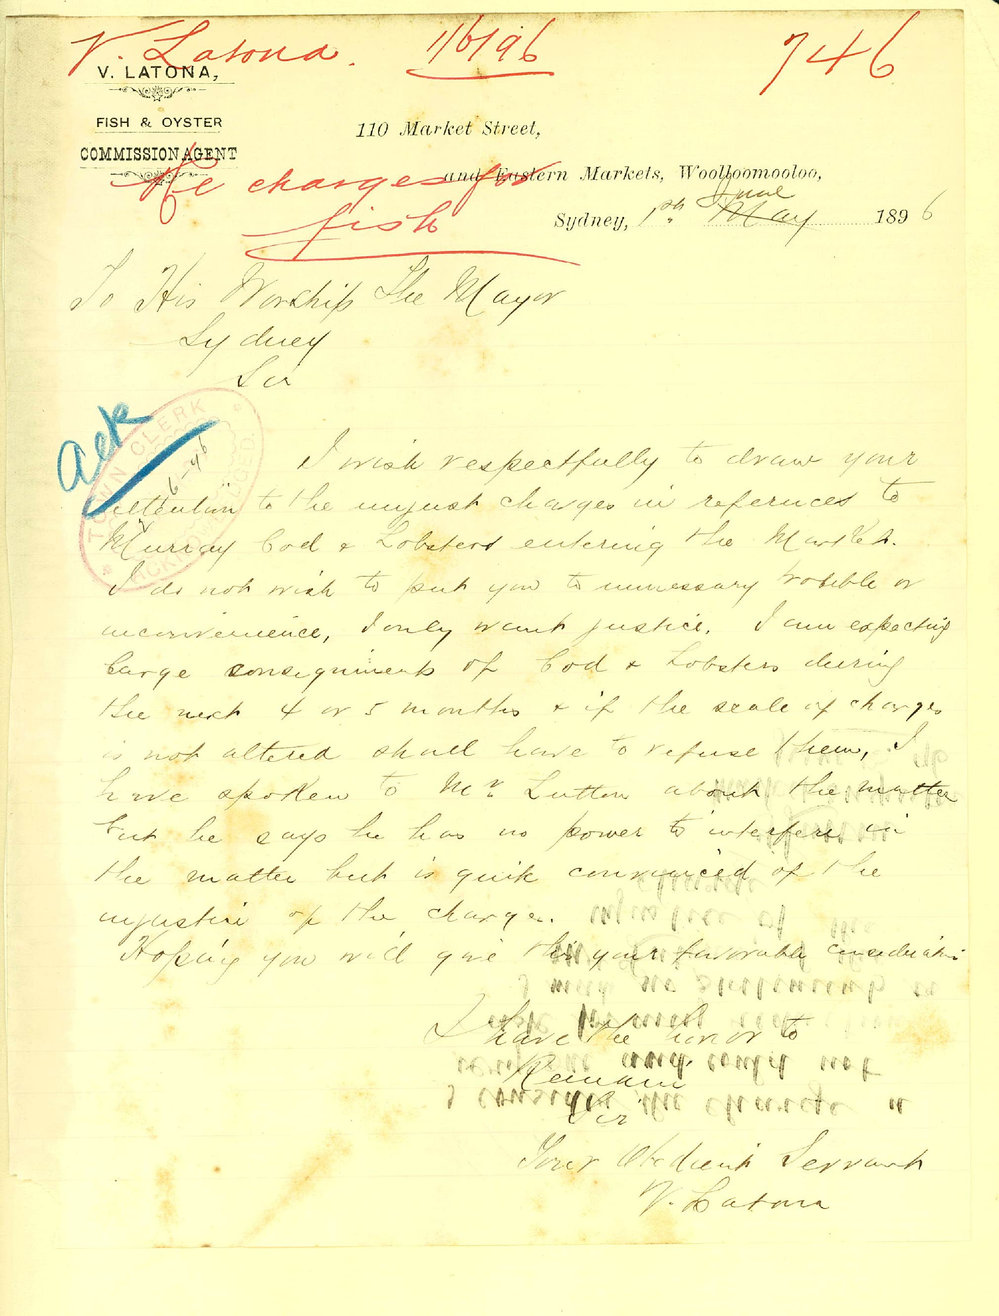 V. Latona. 1/6/96 746
V. LATONA,
FISH & OYSTER
COMMISSION AGENT
110 Market Street,
and Eastern Markets, Woolloomooloo,
Re charges for
fish
June
Sydney, 1st May 1896
To His Worship The Mayor
Sydney
Sir
Ack
TOWN CLERK
ACKNOWLEDGED
I wish respectfully to draw your
attention to the unjust charges in refernces to
Murray Cod & Lobsters entering the Market.
I do not wish to put you to unnessary trouble or
inconvenience, I only want justice. I am expecting
large consignments of Cod & Lobsters during
the next 4 or 5 months & if the scale of charges
is not altered shall have to refuse them, I
have spoken to Mr Lutton about the matter
but he says he has no power to interfere in
the matter but is quite convinced of the
injustice of the charge.
Hoping you will give this your favorable consideration
I have the honor to
Remain
Sir
Your Obedient Servant
V. Latona